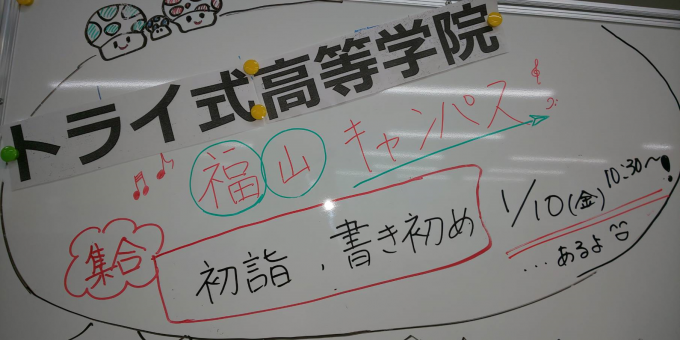 トライ式高等学院
福山キャンパス
集合
初詣、書き初め
1/10(金) 10:30〜!
...あるよ